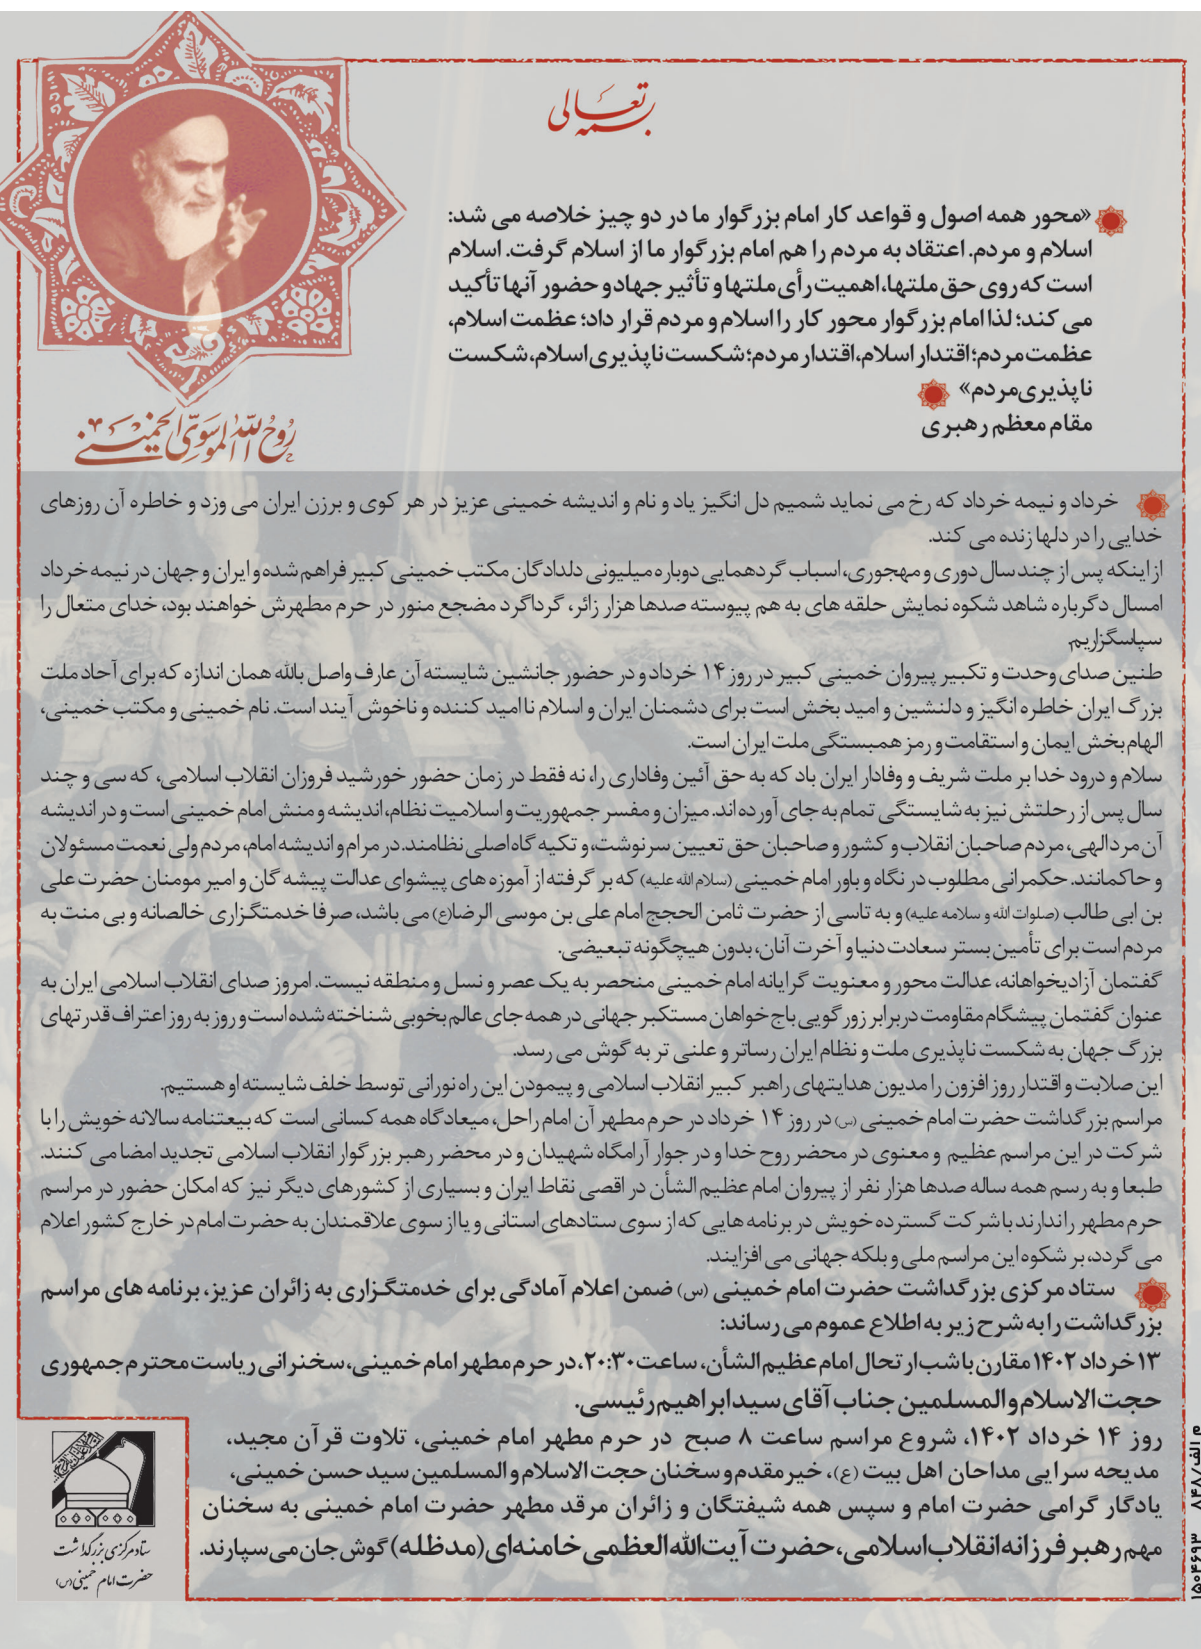 بسمه تعالی
«محور همه اصول و قواعد کار امام بزرگوار ما در دو چیز خلاصه می شد:
اسلام و مردم. اعتقاد به مردم را هم امام بزرگوار ما از اسلام گرفت. اسلام
است که روی حق ملتها، اهمیت رأی ملتها و تأثیر جهاد و حضور آنها تأکید
می کند؛ لذا امام بزرگوار محور کار را اسلام و مردم قرار داد؛ عظمت اسلام،
عظمت مردم؛ اقتدار اسلام، اقتدار مردم؛ شکست ناپذیری اسلام، شکست
ناپذیری مردم»
مقام معظم رهبری
روح الله الموسوی الخمینی
خرداد و نیمه خرداد که رخ می نماید شمیم دل انگیز یاد و نام و اندیشه خمینی عزیز در هر کوی و برزن ایران می وزد و خاطره آن روزهای
خدایی را در دلها زنده می کند.
از اینکه پس از چند سال دوری و مهجوری، اسباب گردهمایی دوباره میلیونی دلدادگان مکتب خمینی کبیر فراهم شده و ایران و جهان در نیمه خرداد
امسال دگرباره شاهد شکوه نمایش حلقه های به هم پیوسته صدها هزار زائر، گرداگرد مضجع منور در حرم مطهرش خواهند بود، خدای متعال را
سپاسگزاریم.
طنین صدای وحدت و تکبیر پیروان خمینی کبیر در روز ۱۴ خرداد و در حضور جانشین شایسته آن عارف واصل بالله همان اندازه که برای آحاد ملت
بزرگ ایران خاطره انگیز و دلنشین و امید بخش است برای دشمنان ایران و اسلام ناامید کننده و ناخوش آیند است. نام خمینی و مکتب خمینی،
الهام بخش ایمان و استقامت و رمز همبستگی ملت ایران است.
سلام و درود خدا بر ملت شریف و وفادار ایران باد که به حق آئین وفاداری را، نه فقط در زمان حضور خورشید فروزان انقلاب اسلامی، که سی و چند
سال پس از رحلتش نیز به شایستگی تمام به جای آورده اند. میزان و مفسر جمهوریت و اسلامیت نظام، اندیشه و منش امام خمینی است و در اندیشه
آن مرد الهی، مردم صاحبان انقلاب و کشور و صاحبان حق تعیین سرنوشت، و تکیه گاه اصلی نظامند. در مرام و اندیشه امام، مردم ولی نعمت مسئولان
و حاکمانند. حکمرانی مطلوب در نگاه و باور امام خمینی (سلام الله علیه) که بر گرفته از آموزه های پیشوای عدالت پیشه گان و امیر مومنان حضرت علی
بن ابی طالب (صلوات الله و سلامه علیه) و به تاسی از حضرت ثامن الحجج امام علی بن موسی الرضا(ع) می باشد، صرفا خدمتگزاری خالصانه و بی منت به
مردم است برای تأمین بستر سعادت دنیا و آخرت آنان، بدون هیچگونه تبعیضی.
گفتمان آزادیخواهانه، عدالت محور و معنویت گرایانه امام خمینی منحصر به یک عصر و نسل و منطقه نیست. امروز صدای انقلاب اسلامی ایران به
عنوان گفتمان پیشگام مقاومت دربرابر زورگویی باج خواهان مستکبر جهانی در همه جای عالم بخوبی شناخته شده است و روز به روز اعتراف قدرتهای
بزرگ جهان به شکست ناپذیری ملت و نظام ایران رساتر و علنی تر به گوش می رسد.
این صلابت و اقتدار روز افزون را مدیون هدایتهای راهبر کبیر انقلاب اسلامی و پیمودن این راه نورانی توسط خلف شایسته او هستیم.
مراسم بزرگداشت حضرت امام خمینی (س) در روز ۱۴ خرداد در حرم مطهر آن امام راحل، میعادگاه همه کسانی است که بیعتنامه سالانه خویش را با
شرکت در این مراسم عظیم و معنوی در محضر روح خدا و در جوار آرامگاه شهیدان و در محضر رهبر بزرگوار انقلاب اسلامی تجدید امضا می کنند.
طبعا و به رسم همه ساله صدها هزار نفر از پیروان امام عظیم الشأن در اقصی نقاط ایران و بسیاری از کشورهای دیگر نیز که امکان حضور در مراسم
حرم مطهر را ندارند با شرکت گسترده خویش در برنامه هایی که از سوی ستادهای استانی و یا از سوی علاقمندان به حضرت امام در خارج کشور اعلام
می گردد، بر شکوه این مراسم ملی و بلکه جهانی می افزایند.
ستاد مرکزی بزرگداشت حضرت امام خمینی (س) ضمن اعلام آمادگی برای خدمتگزاری به زائران عزیز، برنامه های مراسم
بزرگداشت را به شرح زیر به اطلاع عموم می رساند:
۱۳ خرداد ۱۴۰۲ مقارن با شب ارتحال امام عظیم الشأن، ساعت ۲۰:۳۰، در حرم مطهر امام خمینی، سخنرانی ریاست محترم جمهوری
حجت الاسلام والمسلمین جناب آقای سید ابراهیم رئیسی.
روز ۱۴ خرداد ۱۴۰۲، شروع مراسم ساعت ۸ صبح در حرم مطهر امام خمینی، تلاوت قرآن مجید،
مدیحه سرایی مداحان اهل بیت (ع)، خیر مقدم و سخنان حجت الاسلام والمسلمین سید حسن خمینی،
یادگار گرامی حضرت امام و سپس همه شیفتگان و زائران مرقد مطهر حضرت امام خمینی به سخنان
مهم رهبر فرزانه انقلاب اسلامی، حضرت آیت الله العظمی خامنه ای (مدظله) گوش جان می سپارند.
ستاد مرکزی بزرگداشت
حضرت امام خمینی (س)
م الف/ ۸۴۸
۱۵۰۴۶۹۳